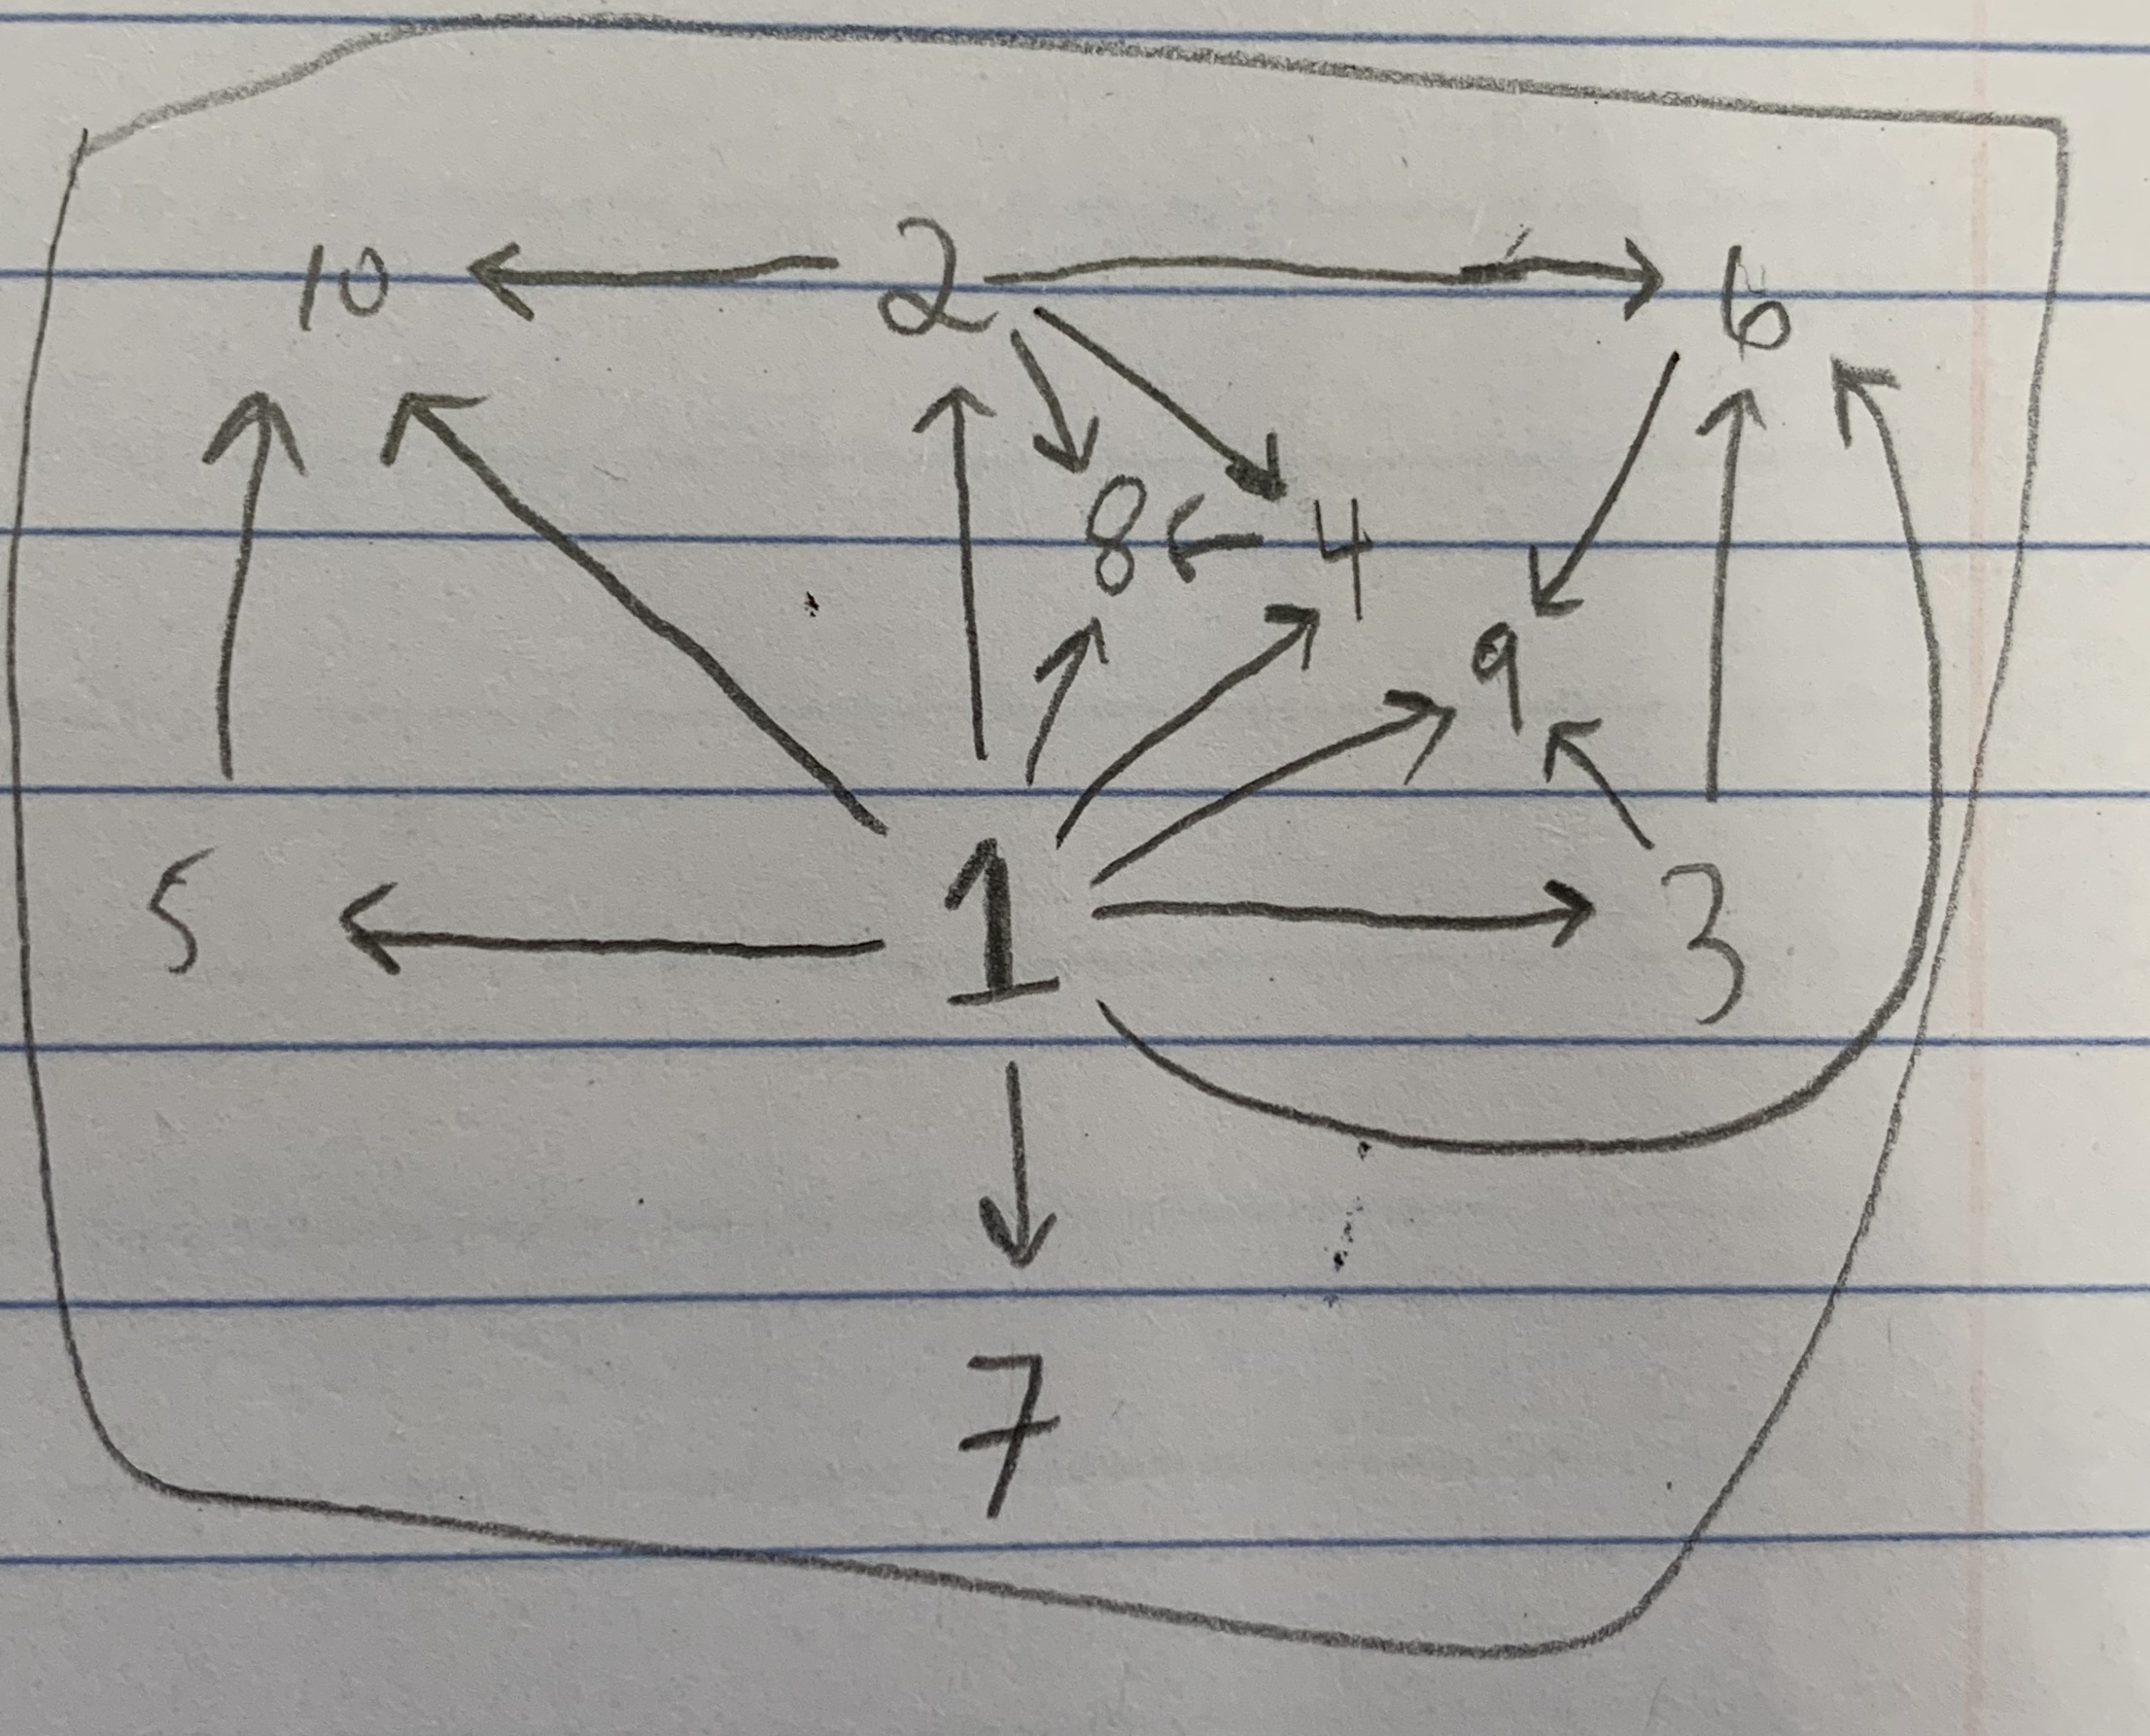 10 2 6
8 4
9
5 1 3
7